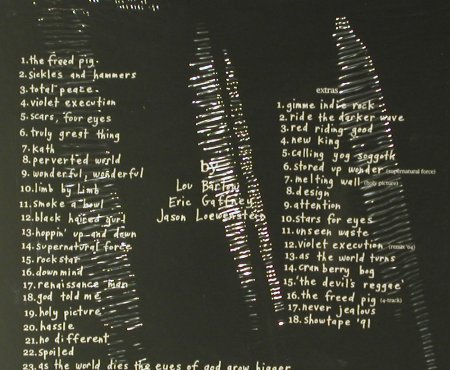 1. the freed pig.
2. sickles and hammers
3. total peace.
4. violet execution
5. scars, four eyes
6. truly great thing
7. kath
8. perverted world
9. wonderful, wonderful
10. limb by limb
11. smoke a bowl
12. black haired gurl
13. hoppin' up and down
14. supernatural force
15. rockstar
16. downmind
17. renaissance man
18. god told me
19. holy picture
20. hassle
21. no different
22. spoiled
23. as the world dies the eyes of god grow bigger
by
Lou Barlow
Eric Gaffney
Jason Loewenstein
extras
1. gimme indie rock
2. ride the darker wave
3. red riding good
4. new king
5. calling yog soggoth
6. stored up wonder (supernatural force)
7. melting wall (holy picture)
8. design
9. attention
10. stars for eyes
11. unseen waste
12. violet execution (remix '04)
13. as the world turns
14. cranberry bog
15. 'the devil's reggae'
16. the freed pig (4-track)
17. never jealous
18. showtape '91